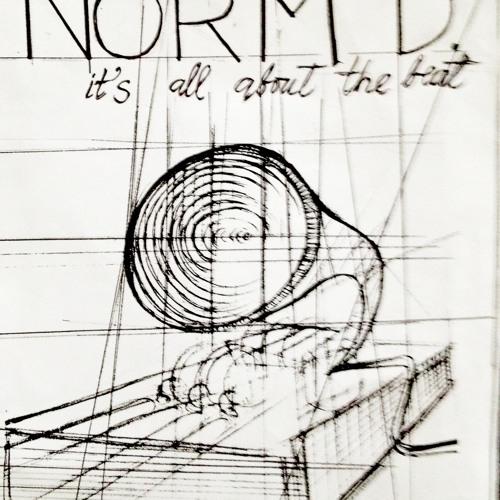 NORM D.
it's all about the beat